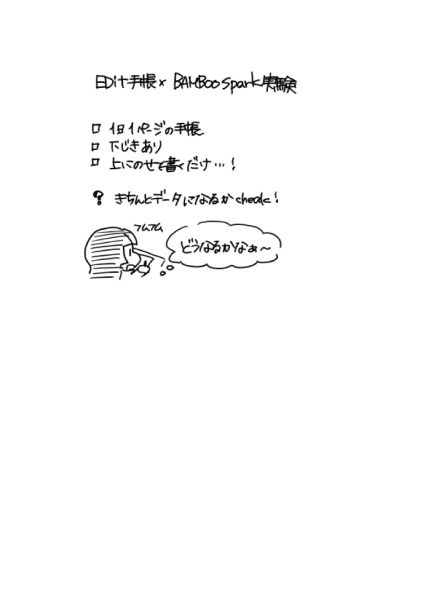 EDiT手帳×BAMBOO spark実験
□ 1日1ページの手帳
□ 下じきあり
□ 上にのせて書くだけ…!
きちんとデータになるかcheck!
フムフム
どうなるかなぁ〜